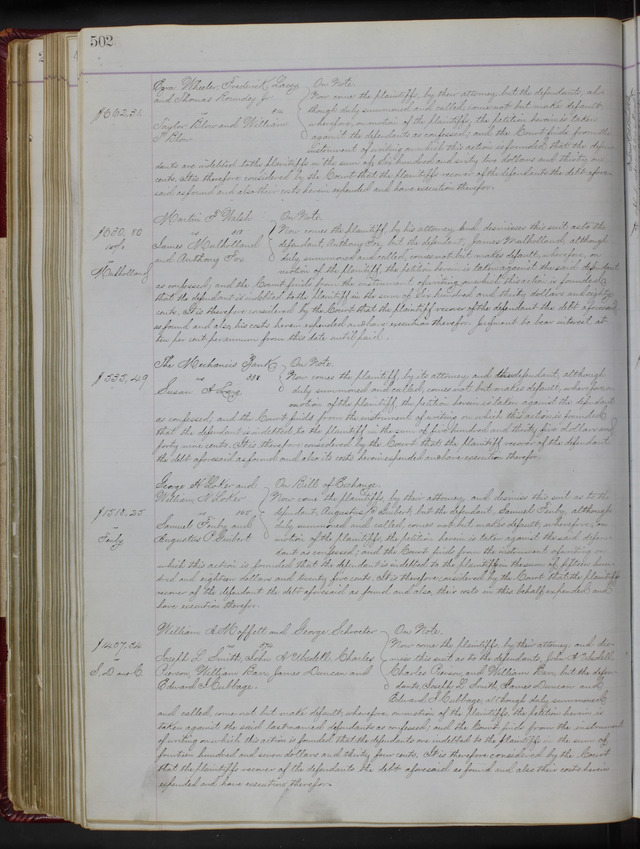 502
Eva Wheeler, Frederick Lacey On Note.
and Thomas Rounday Jr Now come the plaintiffs, by their attorney, but the defendants, al-
$662.31. vs though duly summoned and called, come not but make default;
Taylor Blow and William wherefore, on motion of the plaintiffs, the petition herein is taken
T Blow against the defendants as confessed, and the Court finds from the
instrument of writing on which this action is founded that the defen-
dants are indebted to the plaintiffs in the sum of Six hundred and sixty two dollars and thirty one
cents. It is therefore considered by the Court that the plaintiffs recover of the defendants the debt afore-
said as found and also their costs herein expended and have execution therefor.
Martin F Walsh On Note.
$630.80 vs Now comes the plaintiff by his attorney and dismisses this suit as to the
James Mulholland defendant, Anthony Fox, but the defendant, James Mulholland, although
and Anthony Fox duly summoned and called, comes not but makes default; wherefore, on
Mulholland motion of the plaintiff, the petition herein is taken against the said defendant
as confessed, and the Court finds from the instrument of writing on which this action is founded
that the defendant is indebted to the plaintiff in the sum of Six hundred and thirty dollars and eighty
cents. It is therefore considered by the Court that the plaintiff recover of the defendant the debt aforesaid
as found and also his costs herein expended and have execution therefor. Judgment to bear interest at
ten per cent per annum from this date until paid.
The Mechanics Bank On Note.
$535.49 vs Now comes the plaintiff, by its attorney and the defendant, although
Susan A Long duly summoned and called, comes not but makes default, wherefore, on
motion of the plaintiff, the petition herein is taken against the defendant
as confessed, and the Court finds from the instrument of writing on which this action is founded
that the defendant is indebted to the plaintiff in the sum of five hundred and thirty five dollars and
forty nine cents. It is therefore considered by the Court that the plaintiff recover of the defendant
the debt aforesaid as found and also its costs herein expended and have execution therefor.
George H Loker and On Bills of Exchange.
William N Loker Now come the plaintiffs, by their attorney, and dismiss this suit as to the
$1518.25 vs defendant, Augustus P Guibert, but the defendant, Samuel Finly, although
Samuel Finly and duly summoned and called, comes not but makes default; wherefore, on
Finly Augustus P Guibert motion of the plaintiffs, the petition herein is taken against the said defen-
dant as confessed; and the Court finds from the instrument of writing on
which this action is founded that the defendant is indebted to the plaintiffs in the sum of fifteen hun-
dred and eighteen dollars and twenty five cents. It is therefore considered by the Court that the plaintiffs
recover of the defendant the debt aforesaid as found and also, their costs in this behalf expended and
have execution therefor.
William A Moffett and George Schroeter On Note.
$1407.34 vs Now come the plaintiffs by their attorney and dis-
Joseph L Smith, John A Ubsdell, Charles miss this suit as to the defendants, John A Ubsdell,
S. D and C. Pierson, William Barr, James Duncan and Charles Pierson, and William Barr, but the defen-
Edward J Cubbage. dants, Joseph L Smith, James Duncan and
Edward J Cubbage, although duly summoned
and called, come not but make default, wherefore, on motion of the plaintiffs, the petition herein is
taken against the said last named defendants as confessed; and the Court finds from the instrument
of writing on which this action is founded that the defendants are indebted to the plaintiffs in the sum of
fourteen hundred and seven dollars and thirty four cents. It is therefore considered by the Court
that the plaintiffs recover of the defendants the debt aforesaid as found and also their costs herein
expended and have execution therefor.